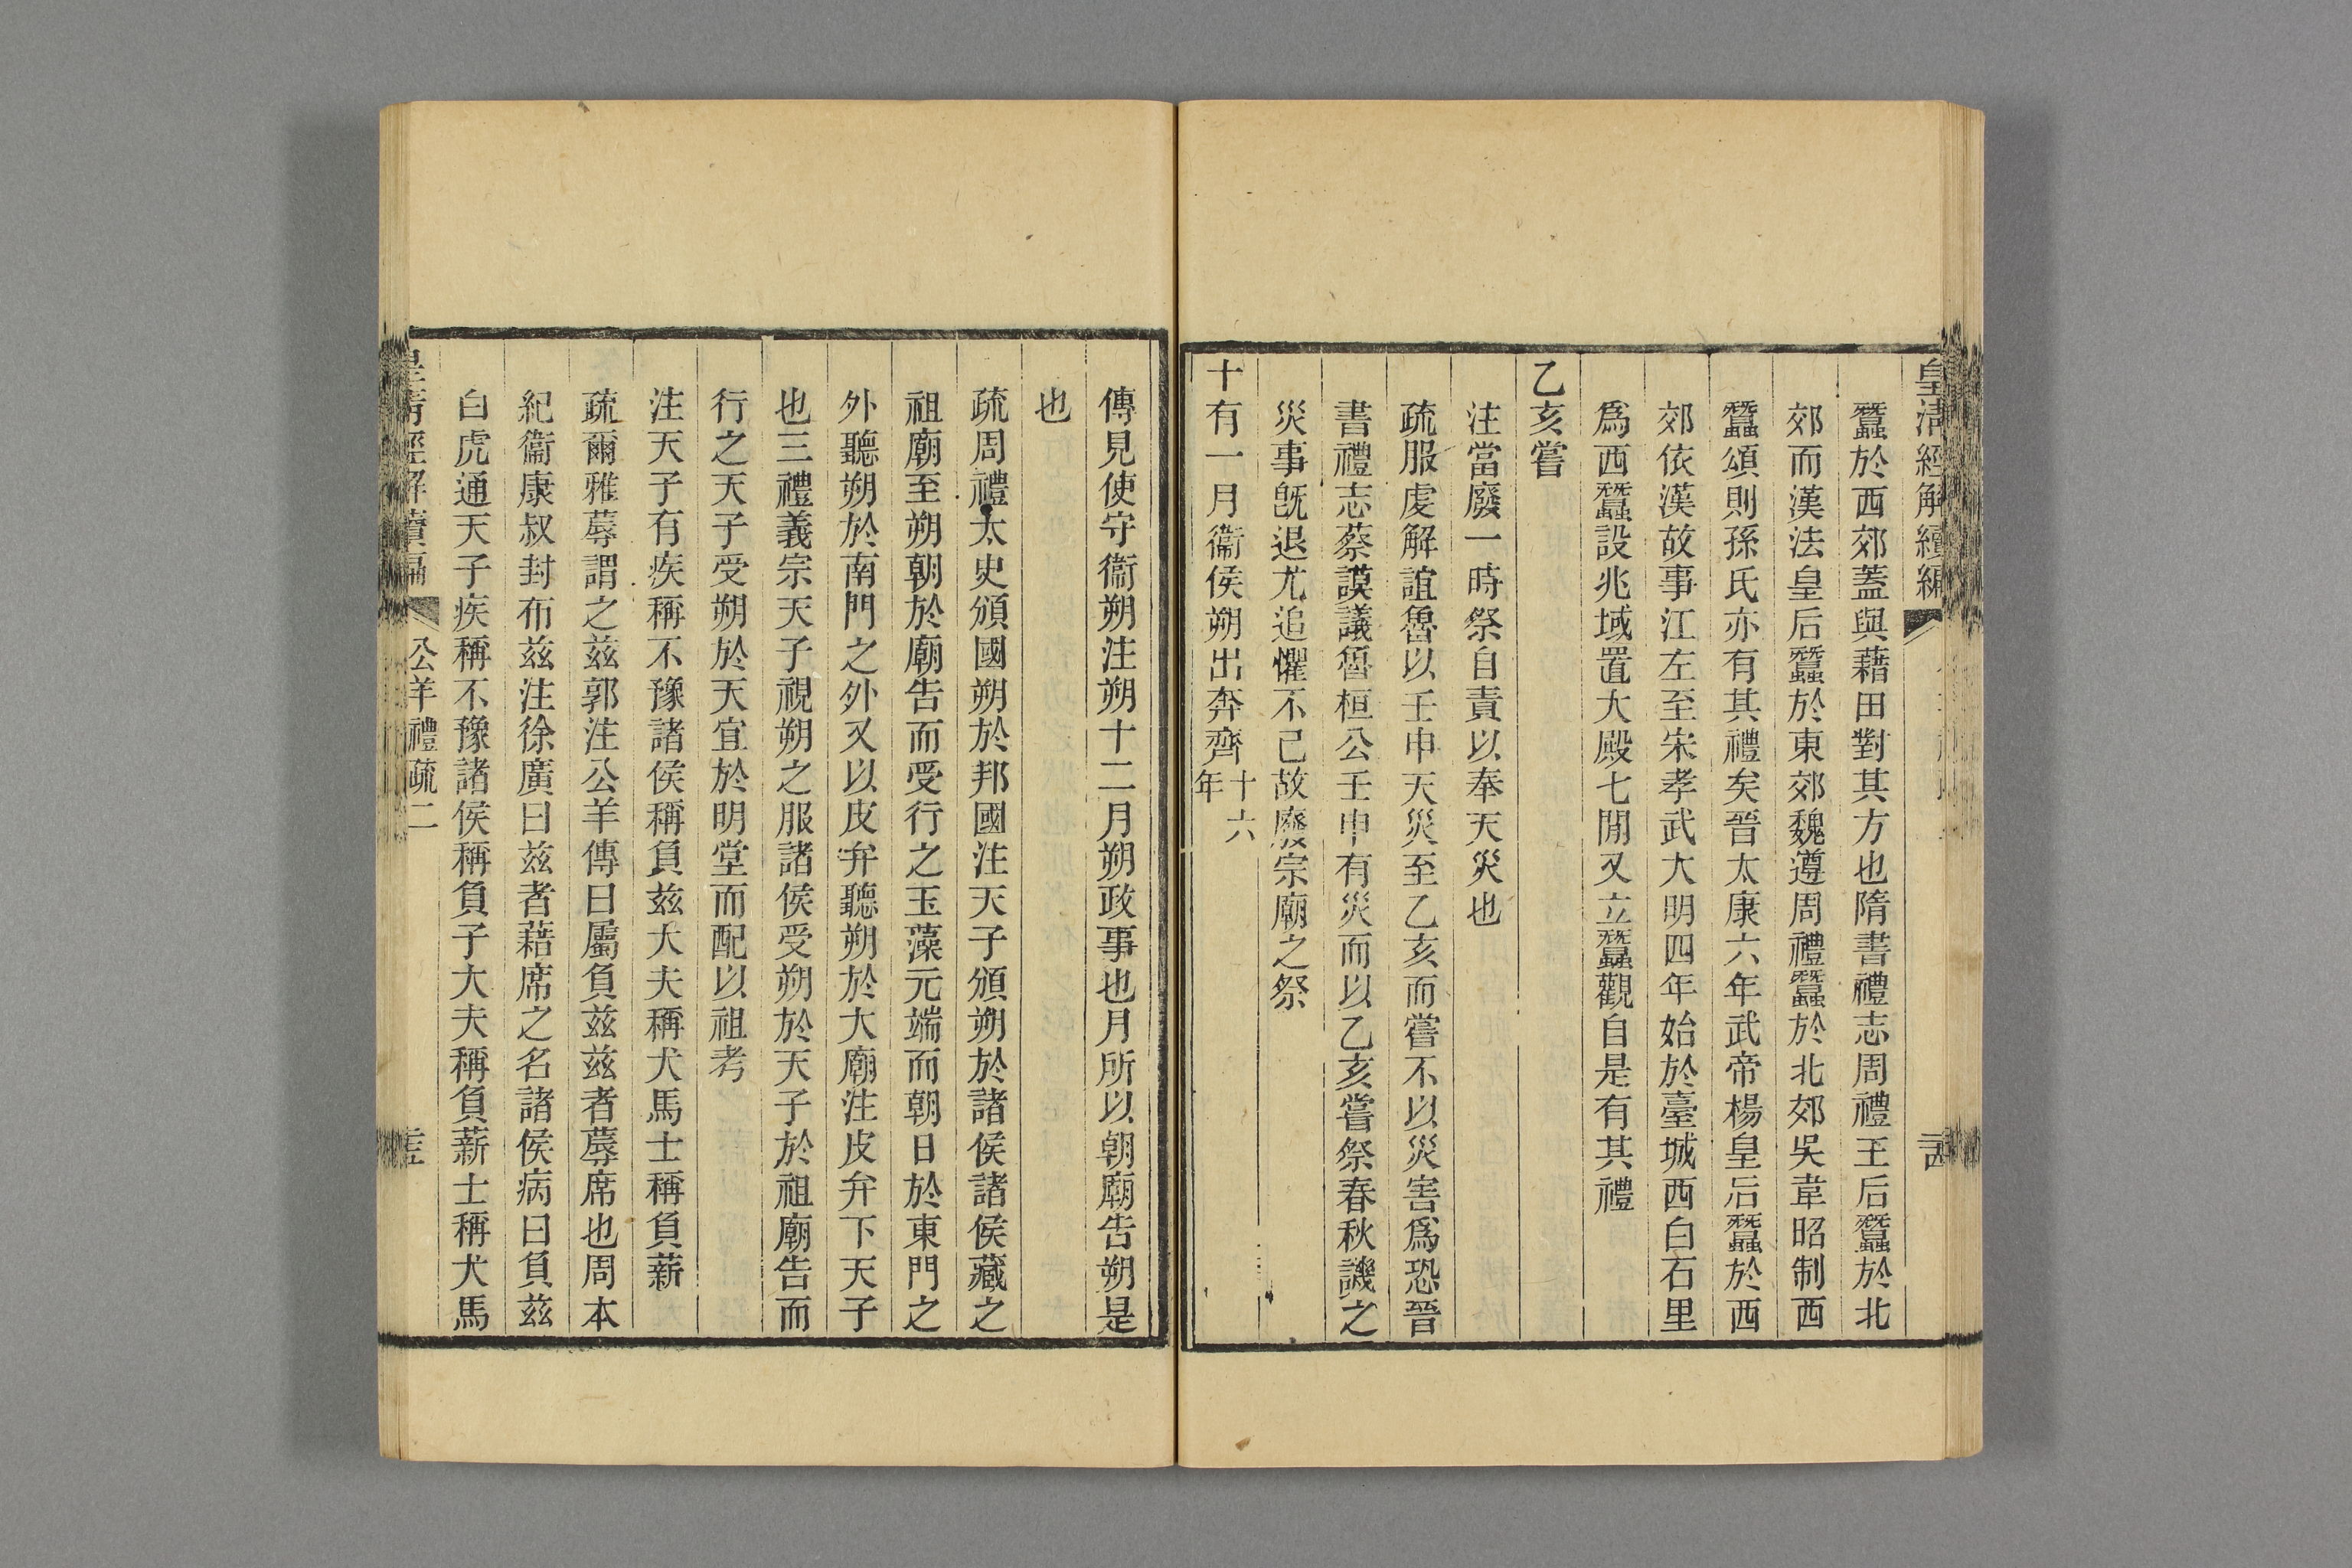 皇清經解續編
蠶於西郊蓋與藉田對其方也隋書禮志周禮王后蠶於北
郊而漢法皇后蠶於東郊魏遵周禮蠶於北郊吳韋昭制西
蠶頌則孫氏亦有其禮矣晉太康六年武帝楊皇后蠶於西
郊依漢故事江左至宋孝武大明四年始於臺城西白石里
爲西蠶設兆域置大殿七閒又立蠶觀自是有其禮
乙亥嘗
注當廢一時祭自責以奉天災也
疏服虔解誼魯以壬申天災至乙亥而嘗不以災害爲恐晉
書禮志蔡謨議魯桓公壬申有災而以乙亥嘗祭春秋譏之
災事旣退尤追懼不已故廢宗廟之祭
十有一月衞侯朔出奔齊十六年
傳見使守衞朔注朔十二月朔政事也月所以朝廟告朔是
也
疏周禮太史頒國朔於邦國注天子頒朔於諸侯諸侯藏之
祖廟至朔朝於廟告而受行之玉藻元端而朝日於東門之
外聽朔於南門之外又以皮弁聽朔於大廟注皮弁下天子
也三禮義宗天子視朔之服諸侯受朔於天子於祖廟告而
行之天子受朔於天宜於明堂而配以祖考
注天子有疾稱不豫諸侯稱負茲大夫稱犬馬士稱負薪
疏爾雅蓐謂之茲郭注公羊傳曰屬負茲茲者蓐席也周本
紀衞康叔封布茲注徐廣曰茲者藉席之名諸侯病曰負茲
白虎通天子疾稱不豫諸侯稱負子大夫稱負薪士稱犬馬
皇清經解續編 公羊禮疏二